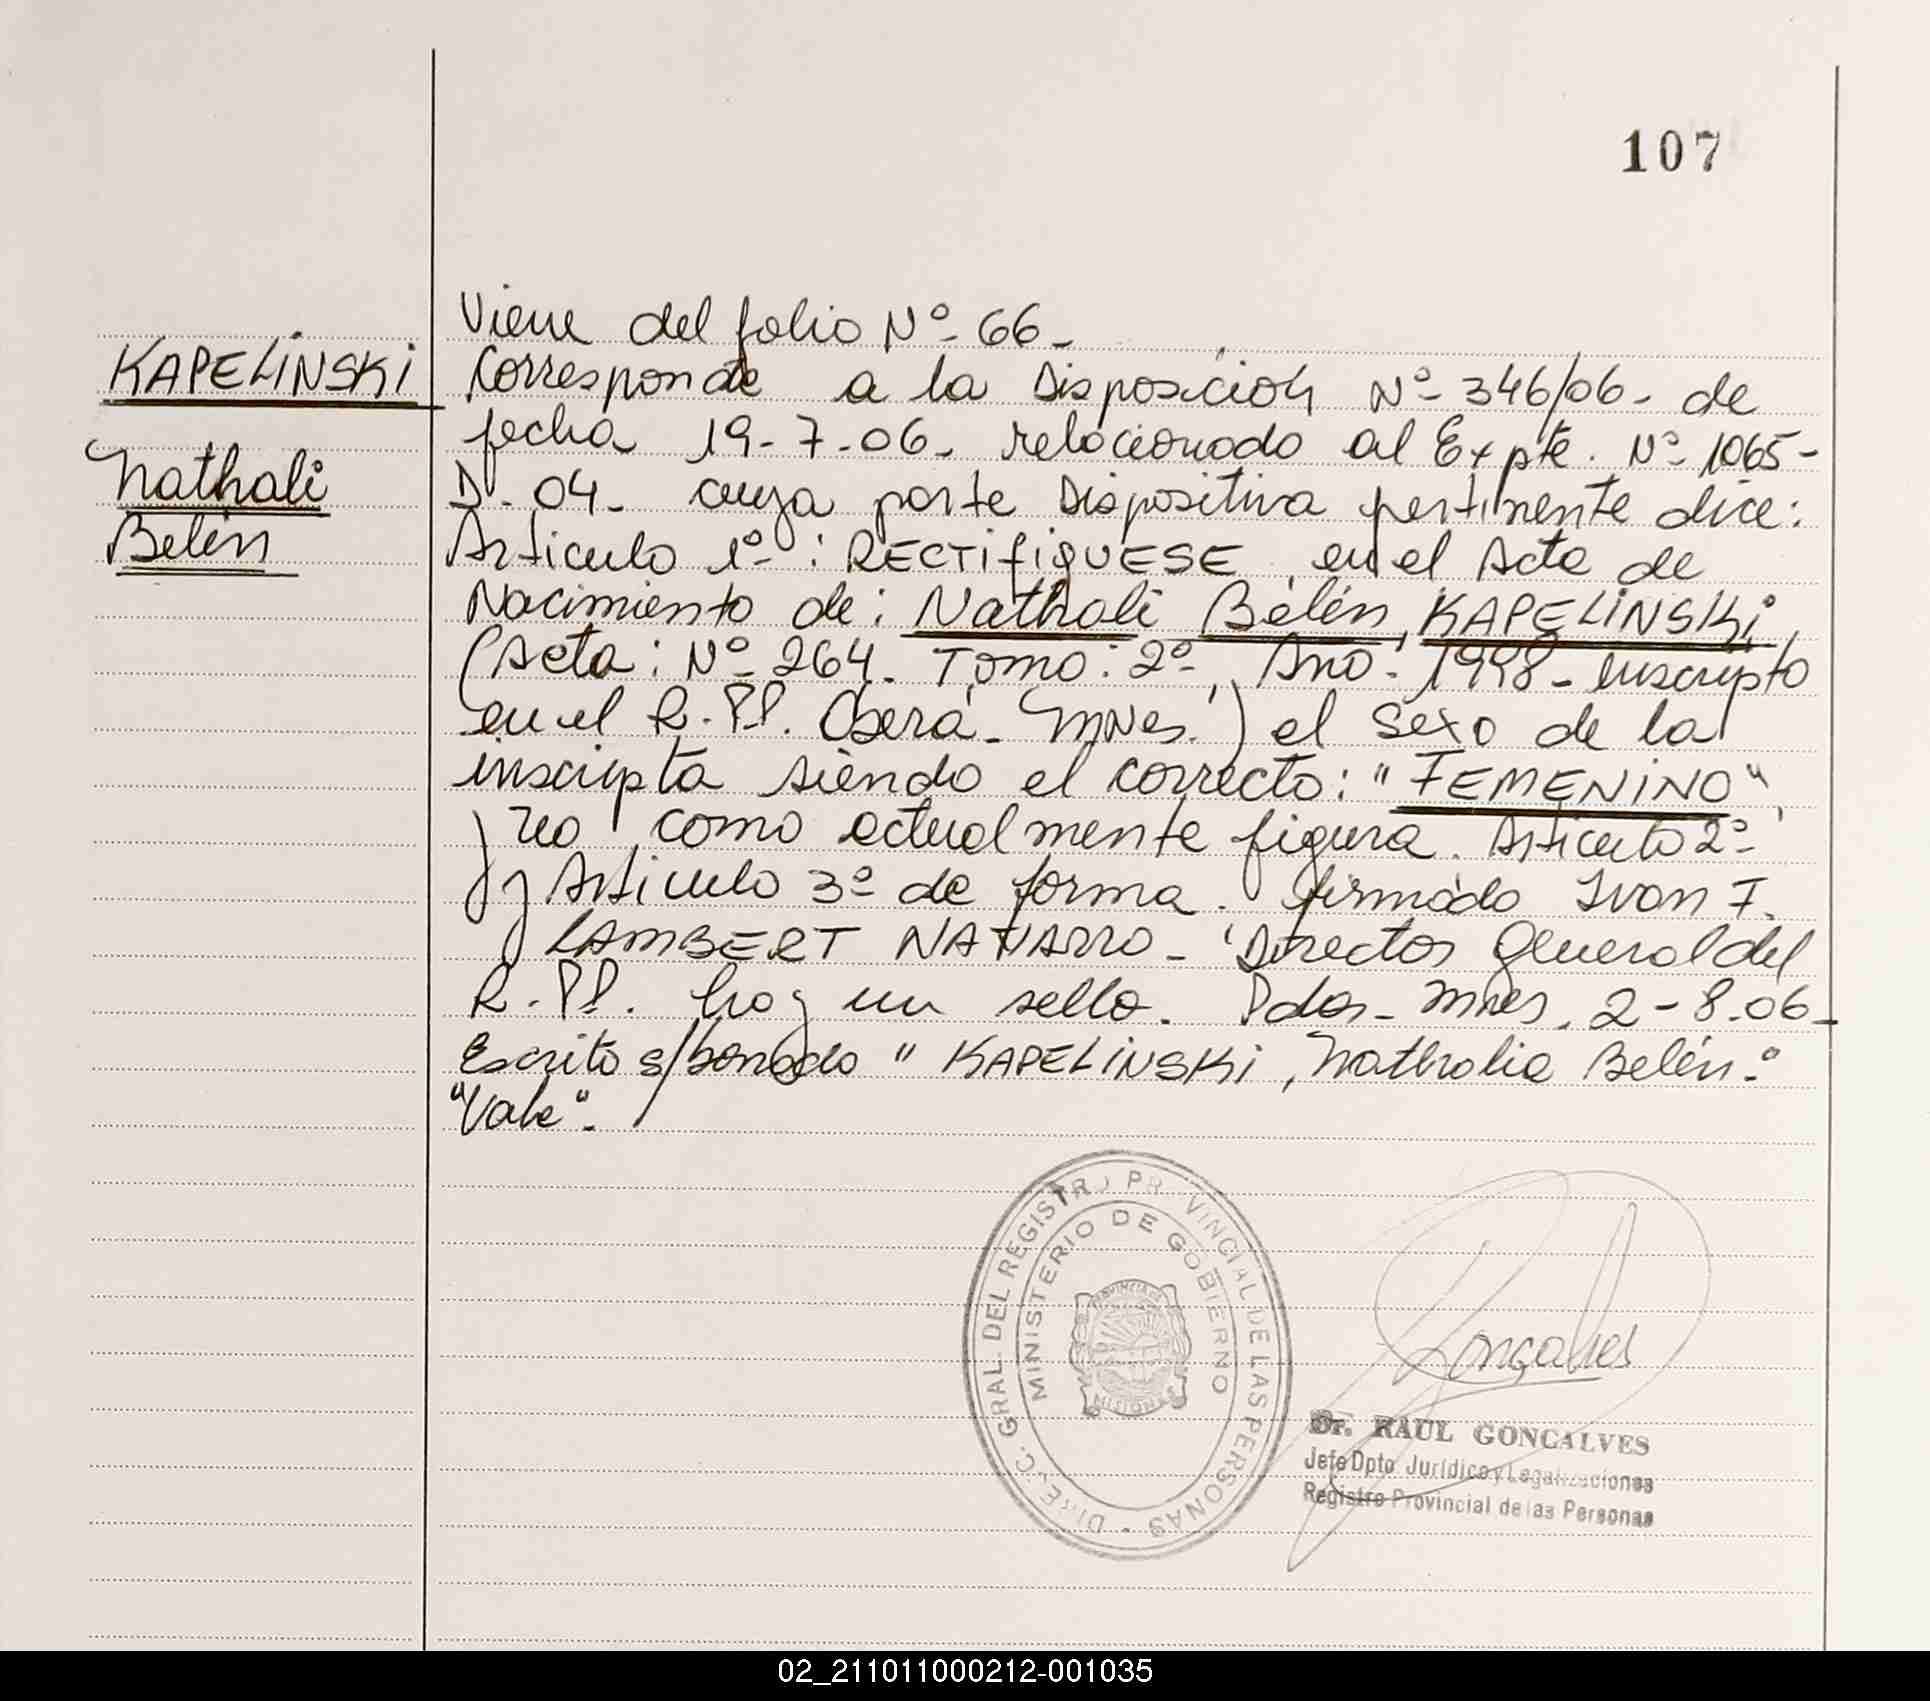 107
Viene del folio Nº 66-
KAPELINSKI
Corresponde a la Disposición Nº 346/06- de
fecha 19-7-06- relacionado al Expte. Nº 1065-
Nathali
D-04- cuya parte Dispositiva pertinente dice:
Belén
Articulo 1º: RECTIFIQUESE, en el Acta de
Nacimiento de: Nathali Belén KAPELINSKI,
(Acta: Nº 264- Tomo: 2º-, Año: 1998- inscripto
en el R.PP. Oberá- Mnes.) el sexo de la
inscripta siendo el correcto: "FEMENINO",
y no como actualmente figura. Articulo 2º
y Articulo 3º de forma. firmado Ivan F.
LAMBERT NAVARRO- Director General del
R.PP. hay un sello. Pdas- Mnes, 2-8-06-
Escrito s/borrado "KAPELINSKI, Nathalia Belén."
"Vale"-
DIREC. GRAL. DEL REGISTRO PROVINCIAL DE LAS PERSONAS -
MINISTERIO DE GOBIERNO
PROVINCIA DE
MISIONES
Gonçalves
Dr. RAUL GONCALVES
Jefe Dpto Jurídico y Legalizaciones
Registro Provincial de las Personas
02_211011000212-001035